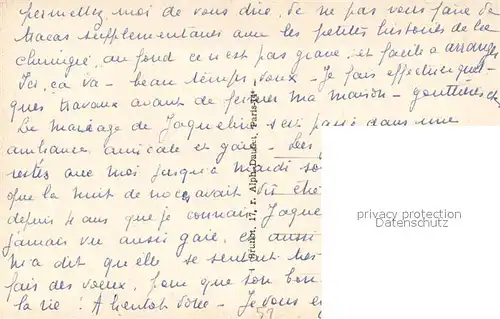 permettez moi de vous dire, de ne pas vous faire de
tracas supplémentaires avec les petites histoires de la
chirurgie, au fond ce n'est pas grave, et facile à arranger
Ici, ça va - beau temps, doux - Je fais effectuer quel-
ques travaux avant de fermer ma maison - gouttières etc
Le mariage de Jaqueline s'est passé dans une
ambiance amicale et gaie - Les
restés avec moi jusqu'à mardi so
que la nuit de noces avait été
depuis 4 ans que je connais Jaque
jamais vu aussi gaie, et aussi
m'a dit qu'elle se sentait très
fais des voeux, pour que son bon
la vie! A bientôt donc - Je vous e
Bruant, 17, r. Alph.-Daudet, Paris-14e
privacy protection
Datenschutz